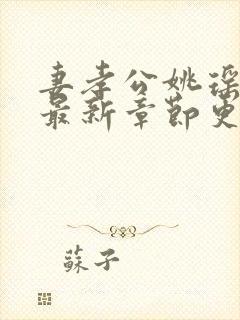 妻孝公姚瑶
最新章節更
蘇子